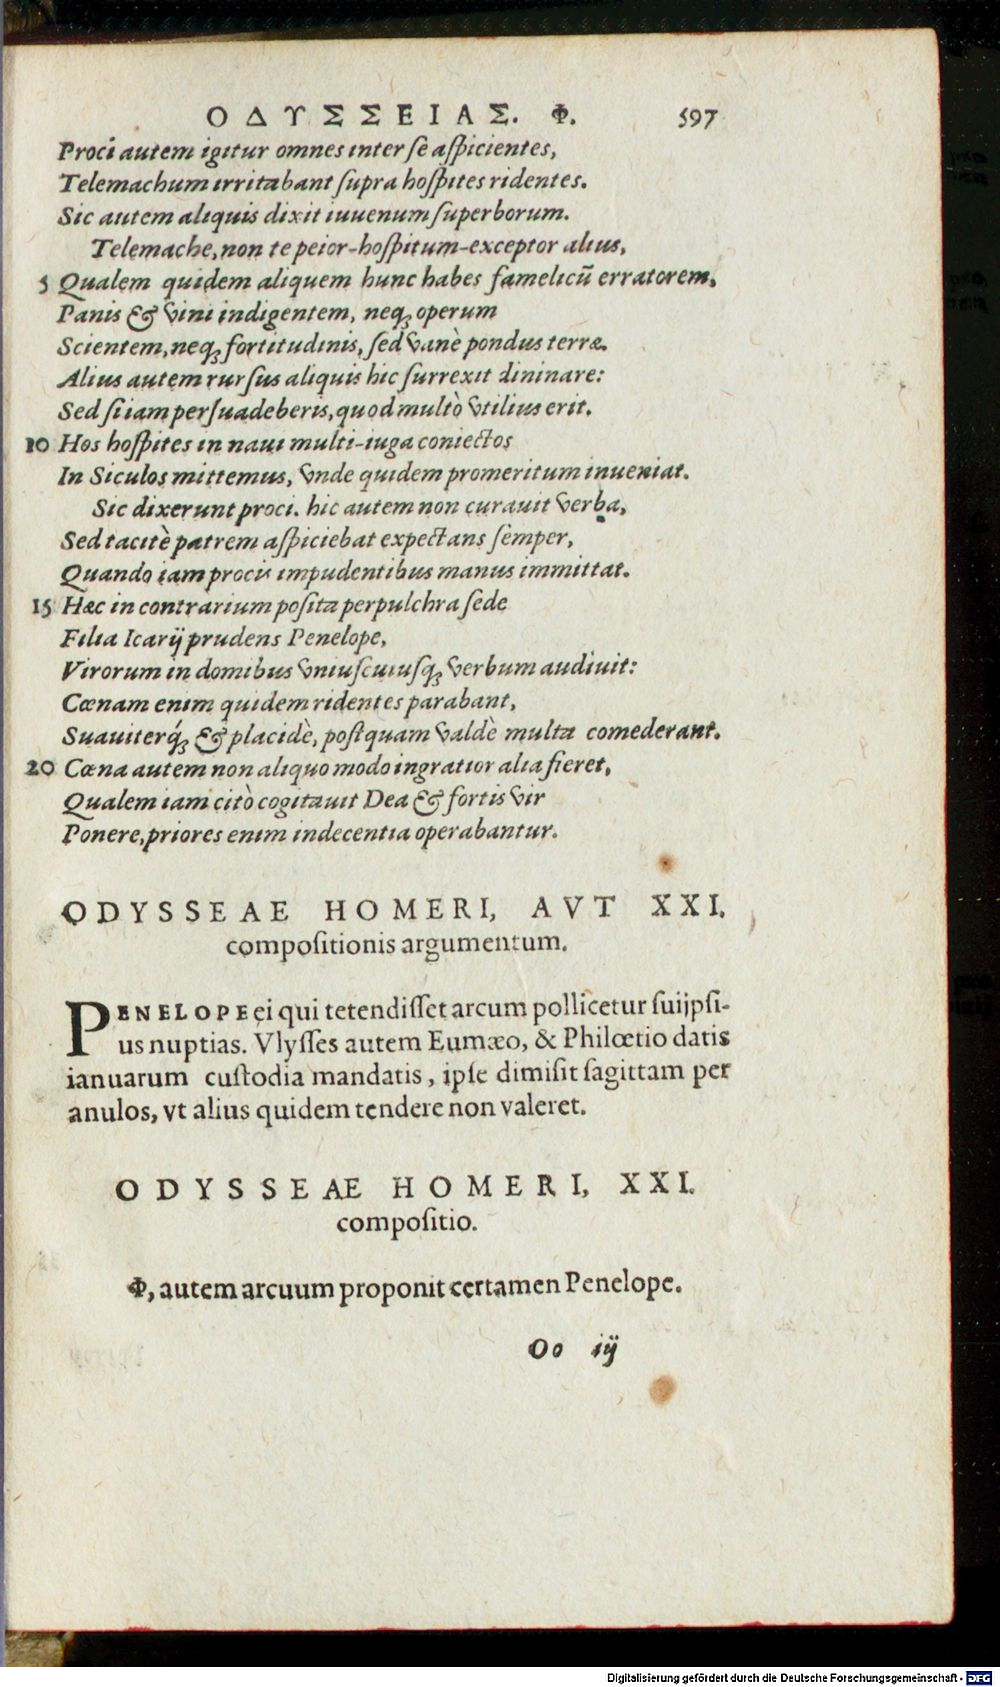 ΟΔΥΣΣΕΙΑΣ. Φ. 597
Proci autem igitur omnes inter se aſpicientes,
Telemachum irritabant ſupra hoſpites ridentes.
Sic autem aliquis dixit iuuenum ſuperborum.
Telemache, non te peior-hoſpitum-exceptor alius,
5 Qualem quidem aliquem hunc habes famelicū erratorem,
Panis & vini indigentem, neqꝫ operum
Scientem, neqꝫ fortitudinis, ſed vanè pondus terræ.
Alius autem rurſus aliquis hic ſurrexit dininare:
Sed ſi iam perſuadeberis, quod multò vtilius erit.
10 Hos hoſpites in naui multi-iuga coniectos
In Siculos mittemus, vnde quidem promeritum inueniat.
Sic dixerunt proci. hic autem non curauit verba,
Sed tacitè patrem aſpiciebat expectans ſemper,
Quando iam procis impudentibus manus immittat.
15 Hæc in contrarium poſita perpulchra ſede
Filia Icarij prudens Penelope,
Virorum in domibus vniuſcuiuſqꝫ verbum audiuit:
Cœnam enim quidem ridentes parabant,
Suauiterq́ꝫ & placidè, poſtquam valdè multa comederant.
20 Cœna autem non aliquo modo ingratior alia fieret,
Qualem iam citò cogitauit Dea & fortis vir
Ponere, priores enim indecentia operabantur.
ODYSSEAE HOMERI, AVT XXI.
compoſitionis argumentum.
PENELOPE ei qui tetendiſſet arcum pollicetur ſuijpſi-
us nuptias. Vlyſſes autem Eumæo, & Philœtio datis
ianuarum cuſtodia mandatis, ipſe dimiſit ſagittam per
anulos, vt alius quidem tendere non valeret.
ODYSSEAE HOMERI, XXI.
compoſitio.
Φ, autem arcuum proponit certamen Penelope.
Oo iij
Digitalisierung gefördert durch die Deutsche Forschungsgemeinschaft - DFG